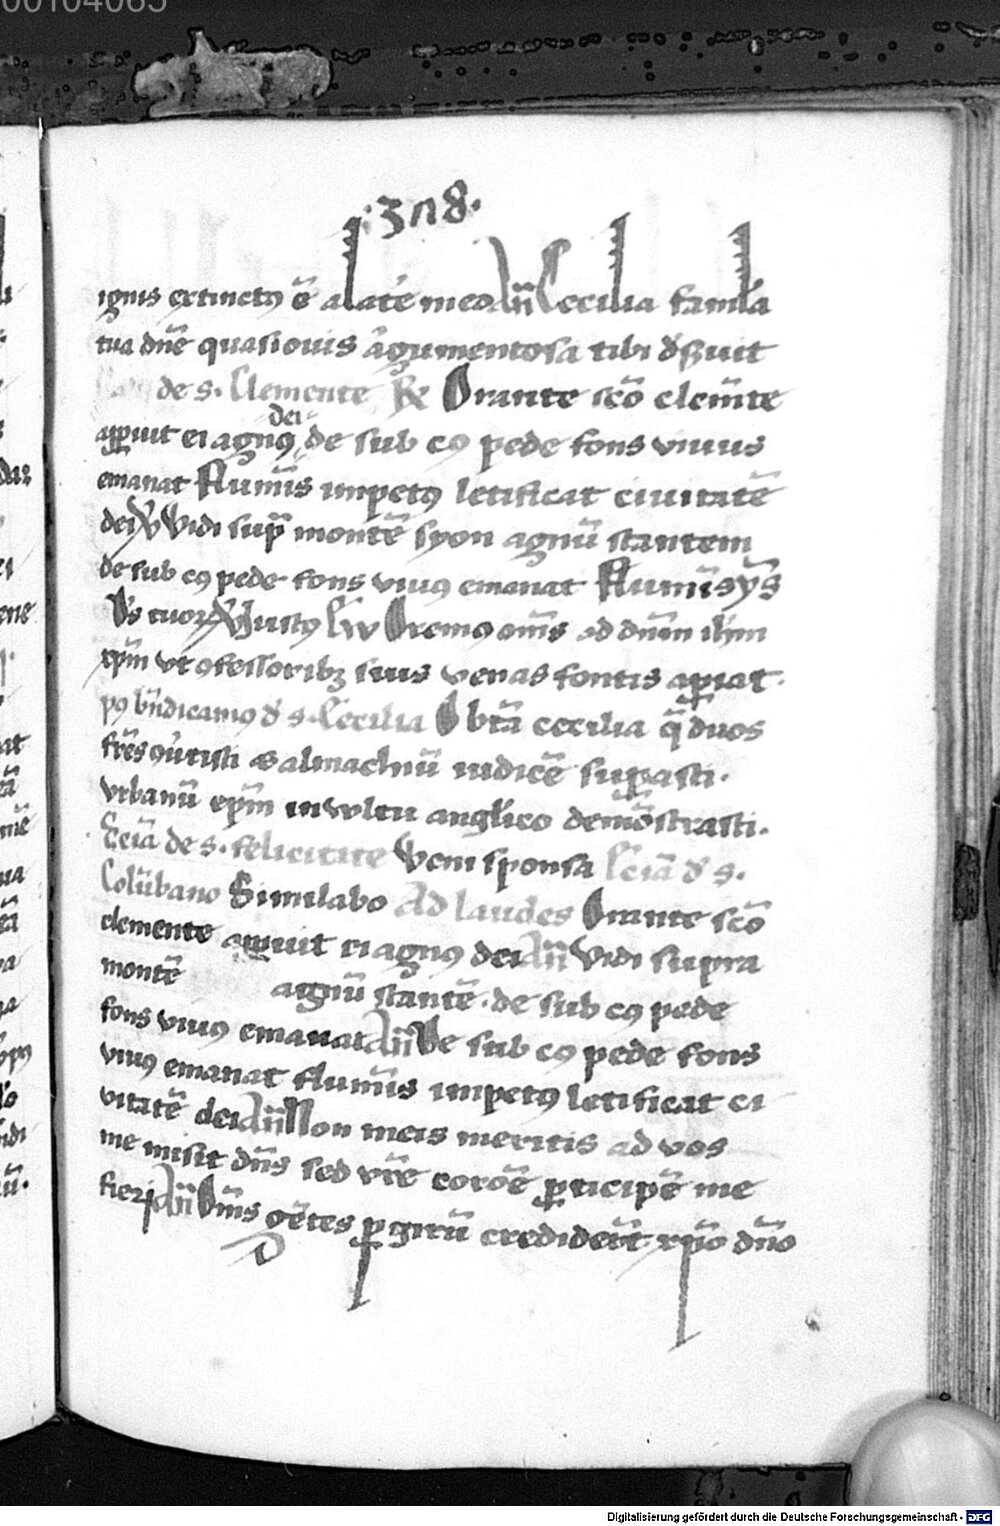 00104065
·3n8·
ignis extinctꝰ ē a latē meo Añ Cecilia famla
tua dn̄e quasi ouis argumentosa tibi dẜuit
de s. Clemente R̃ Orante sc̄o clem̄te
aꝑuit ei agnꝰ dei de sub cꝰ pede fons viuus
emanat Flumīs impetꝰ letificat ciuitatē
dei v̾ Vidi supͣ montē syon agnū stantem
de sub cꝰ pede fons viuꝰ emanat Flumīs ys̄
D̄s tuoꝝ v̾ Justꝰ Eẃ Oremꝰ om̄s ad dn̄m ihm̄
xp̄m vt ꝯfessoribꝫ suis venas fontis aꝑiat·
pꝰ bn̄dicamꝰ d̾ s. Cecilia O btā cecilia q̄ duos
fr̄es ꝯu̾tisti & almachiū iudicē suꝑasti·
vrbanū ep̄m in vvltu angl̾ico demōstrasti·
Eciā de s. felicitate Veni sponsa Eciā d̾ s.
Colūbano Similabo Ad laudes Orante sc̄o
clemente aꝑuit ei agnꝰ dei Añ Vidi supra
montē agnū stantē · de sub cꝰ pede
fons viuꝰ emanat Añ De sub cꝰ pede fons
viuꝰ emanat flumīs impetꝰ letificat ci
vitatē dei Añ Non meis meritis ad vos
me misit dn̄s sed vr̄e corōe ꝑticipē me
fieri Añ Om̄s gētes ꝑ girū crediderūt xp̄o dn̄o
Digitalisierung gefördert durch die Deutsche Forschungsgemeinschaft - DFG